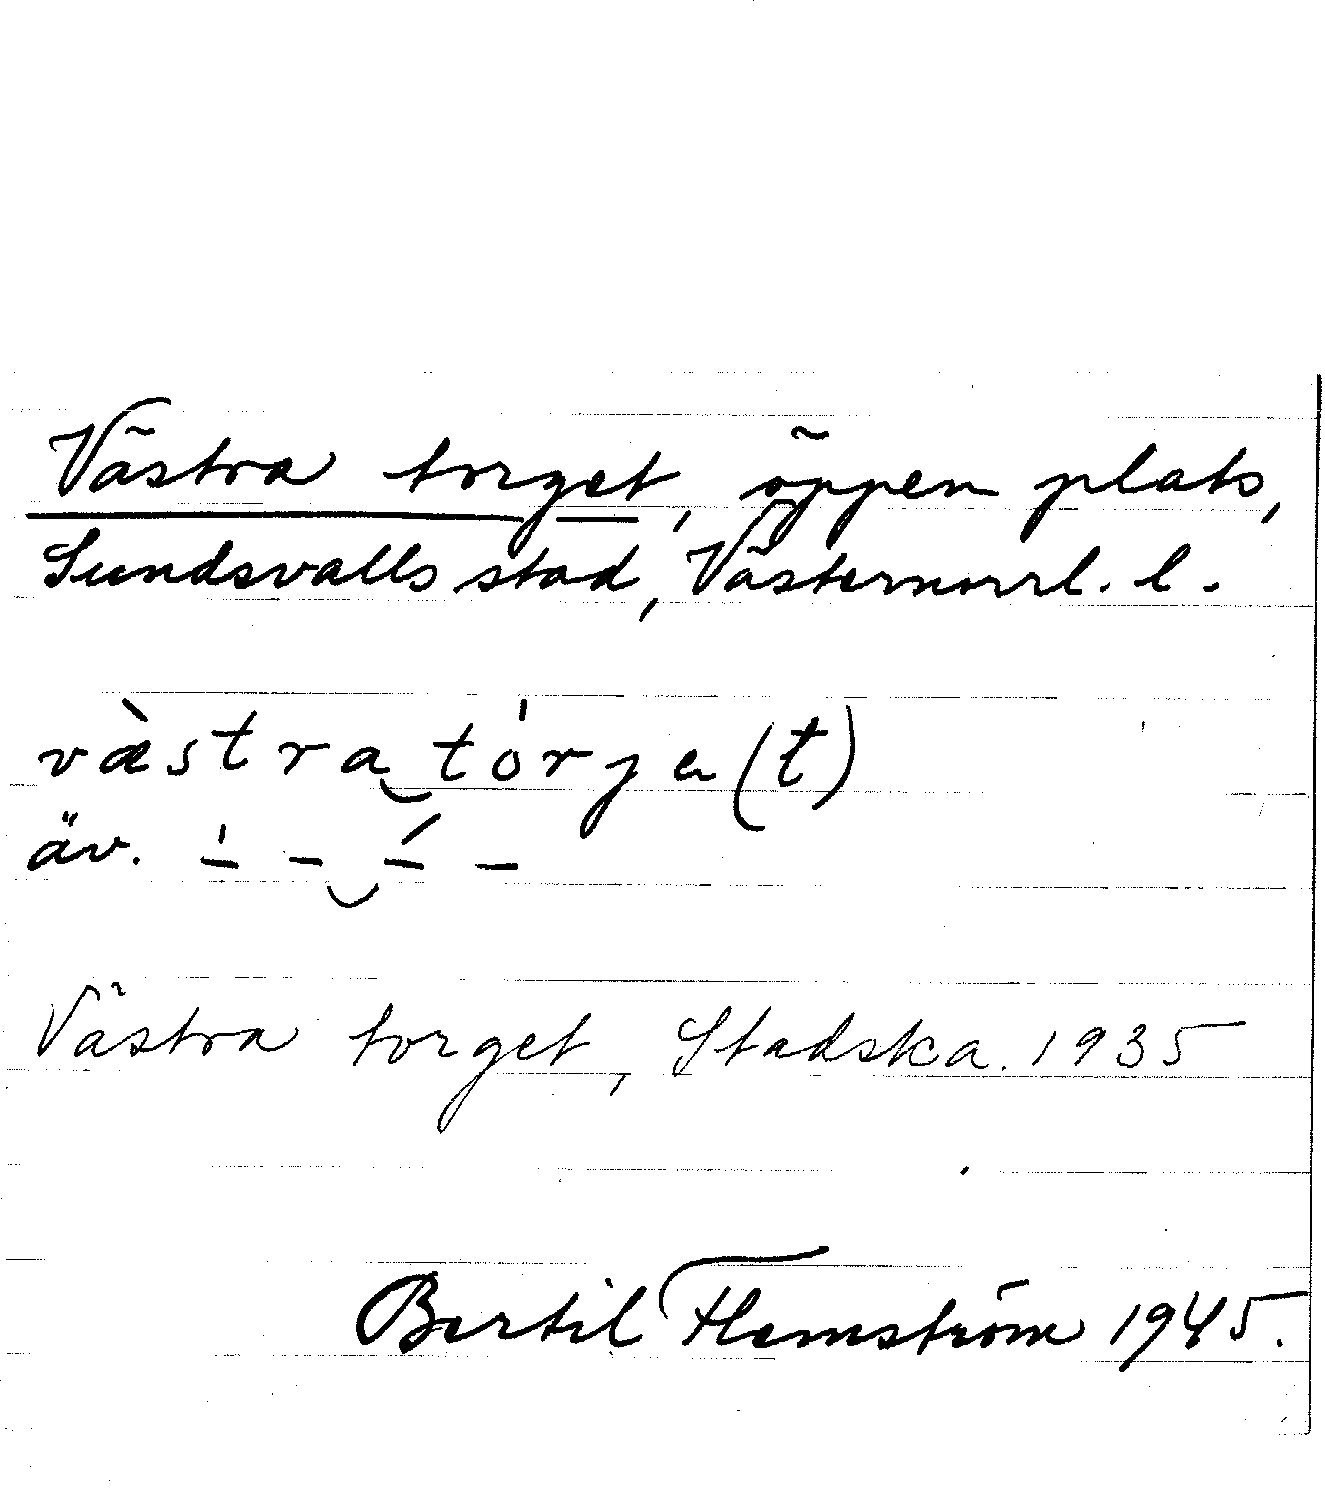 Västra torget, öppen plats,
Sundsvalls stad, Västernorrl. l.
væ̀stra‿tórje(t)
äv. –́ –‿–́ –
Västra torget, Stadska. 1935
Bertil Flemström 1945.